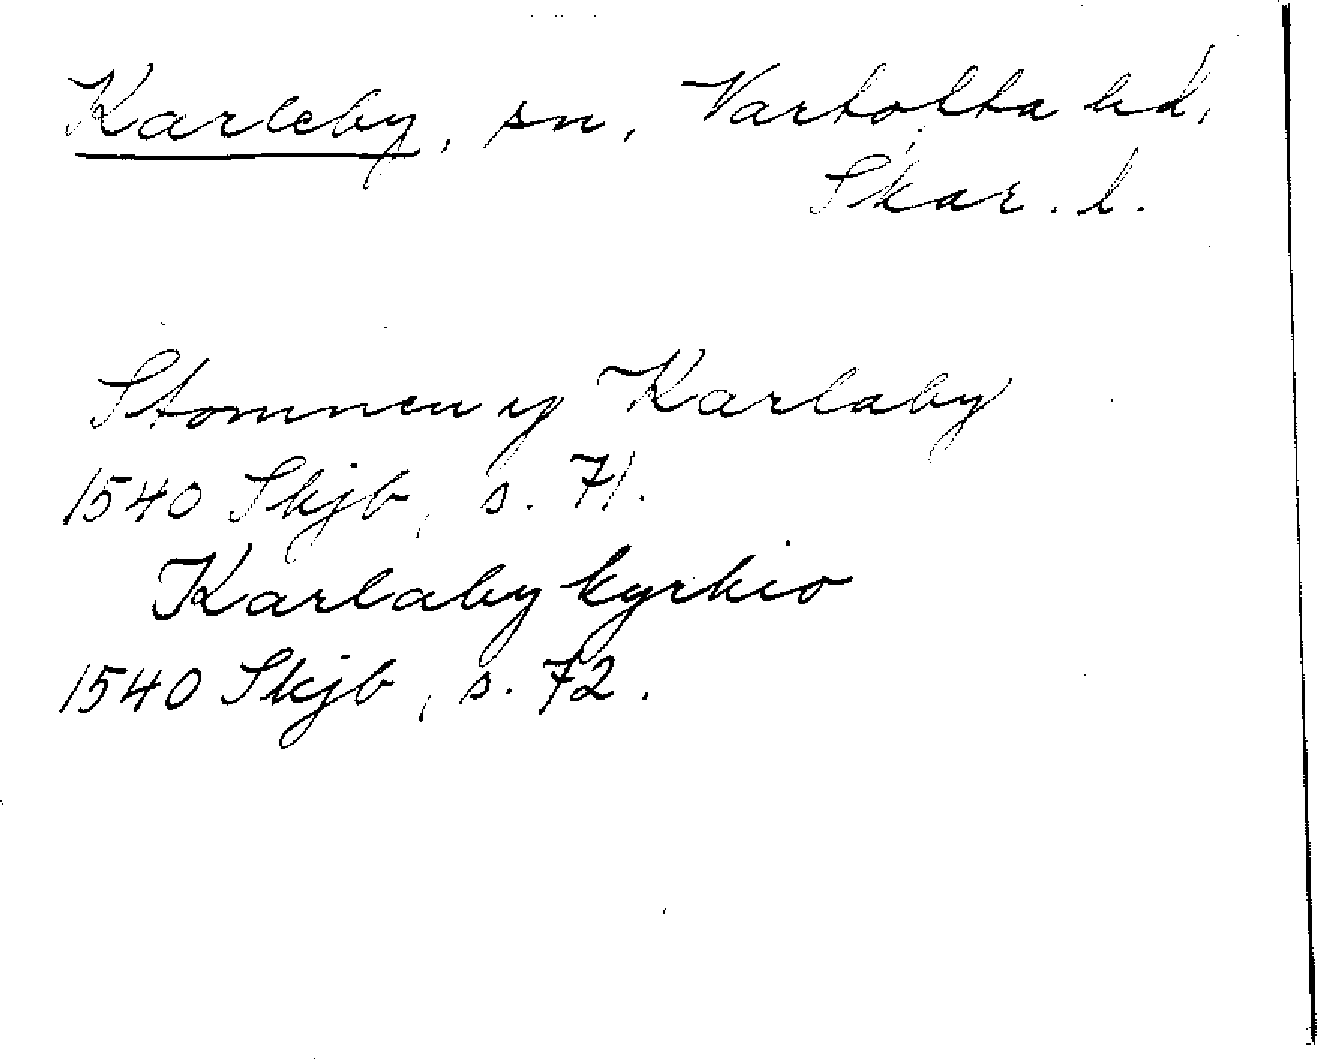 Karleby, sn, Vartofta hd,
Skar. l.
Stomnen y Karlaby
1540 Skjb, s. 71.
Karlaby kyrkio
1540 Skjb, s. 72.